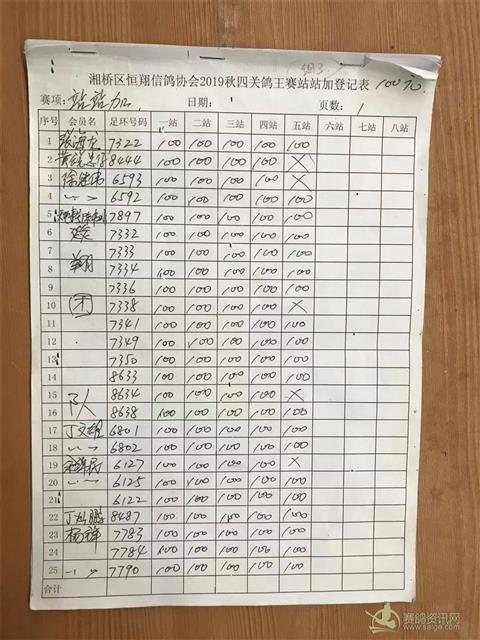 湘桥区恒翔信鸽协会2019秋四关鸽王赛站站加登记表 100元
赛项：站站加 日期： 页数：
序号 会员名 足环号码 一站 二站 三站 四站 五站 六站 七站 八站
1 张海龙 7322 100 100 100 100 100
2 8444 100 100 100 100 ×
3 6593 100 100 100 100 ×
4 〃 6592 100 100 100 100 100
5 7897 100 100 100 100 100
6 7332 100 100 100 100 100
7 7333 100 100 100 100 100
8 翔 7334 100 100 100 100 100
9 7336 100 100 100 100 100
10 团 7338 100 100 100 100 ×
11 7341 100 100 100 100 100
12 7349 100 100 100 100 100
13 7350 100 100 100 100 100
14 8633 100 100 100 100 100
15 队 8634 100 100 100 100 ×
16 8638 100 100 100 100 100
17 丁文雄 6801 100 100 100 100 100
18 〃 6802 100 100 100 100 100
19 6127 100 100 100 100 ×
20 〃 6125 100 100 100 100 100
21 6122 100 100 100 100 100
22 8487 100 100 100 100 100
23 杨祥 7783 100 100 100 100 100
24 7784 100 100 100 100 100
25 〃 7790 100 100 100 100 100
合计
赛鸽资讯网
www.saige.com